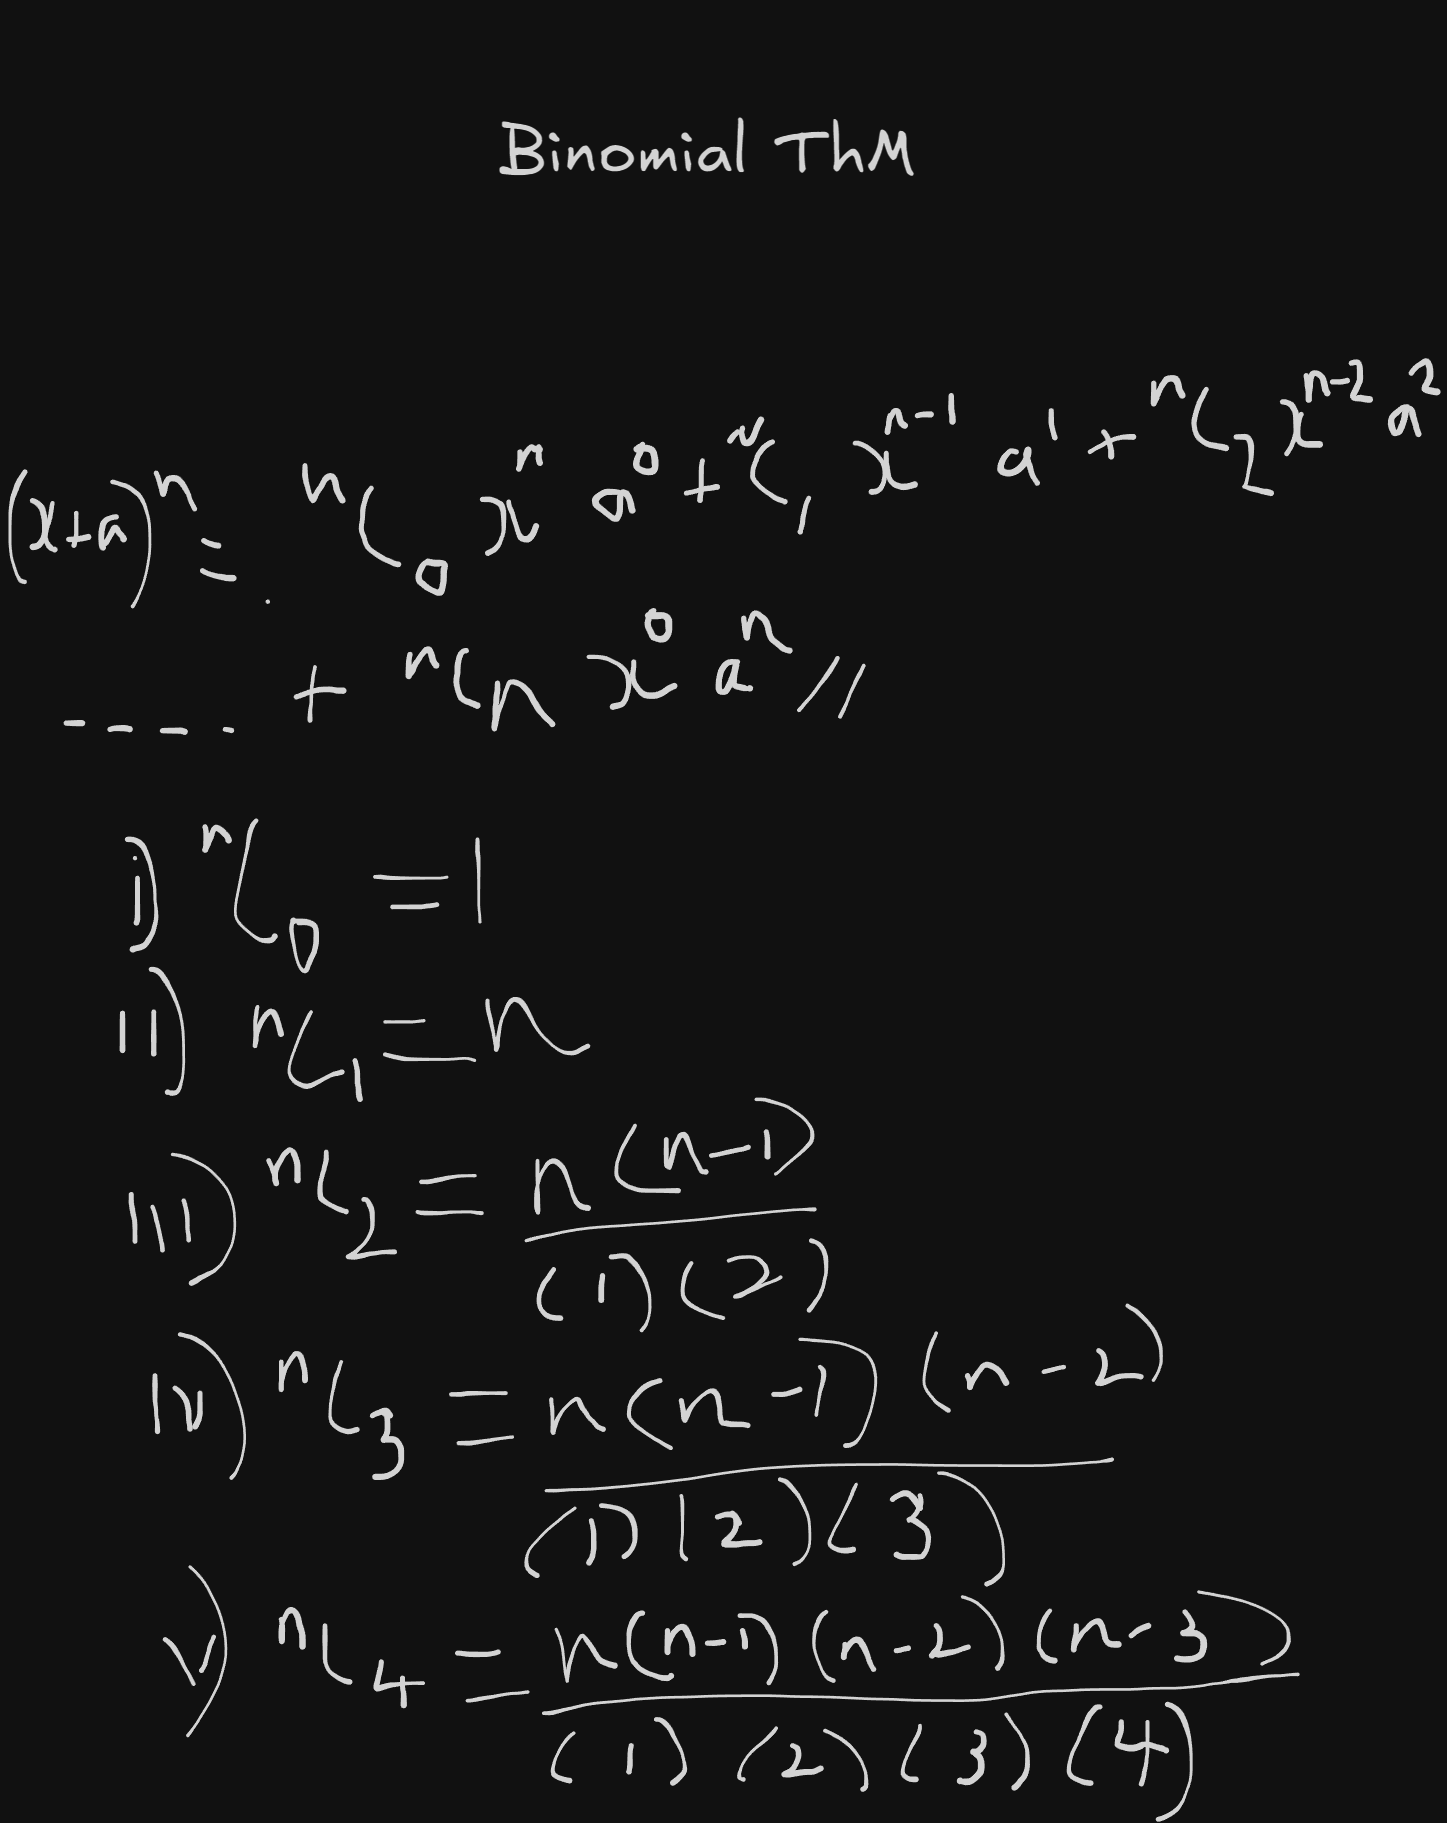 Binomial ThM
(x+a)ⁿ = ⁿC₀ xⁿ a⁰ + ⁿC₁ xⁿ⁻¹ a¹ + ⁿC₂ xⁿ⁻² a²
---- + ⁿCₙ x⁰ aⁿ //
i) ⁿC₀ = 1
ii) ⁿC₁ = n
iii) ⁿC₂ = n(n-1)
(1)(2)
iv) ⁿC₃ = n(n-1)(n-2)
(1)(2)(3)
v) ⁿC₄ = n(n-1)(n-2)(n-3)
(1)(2)(3)(4)